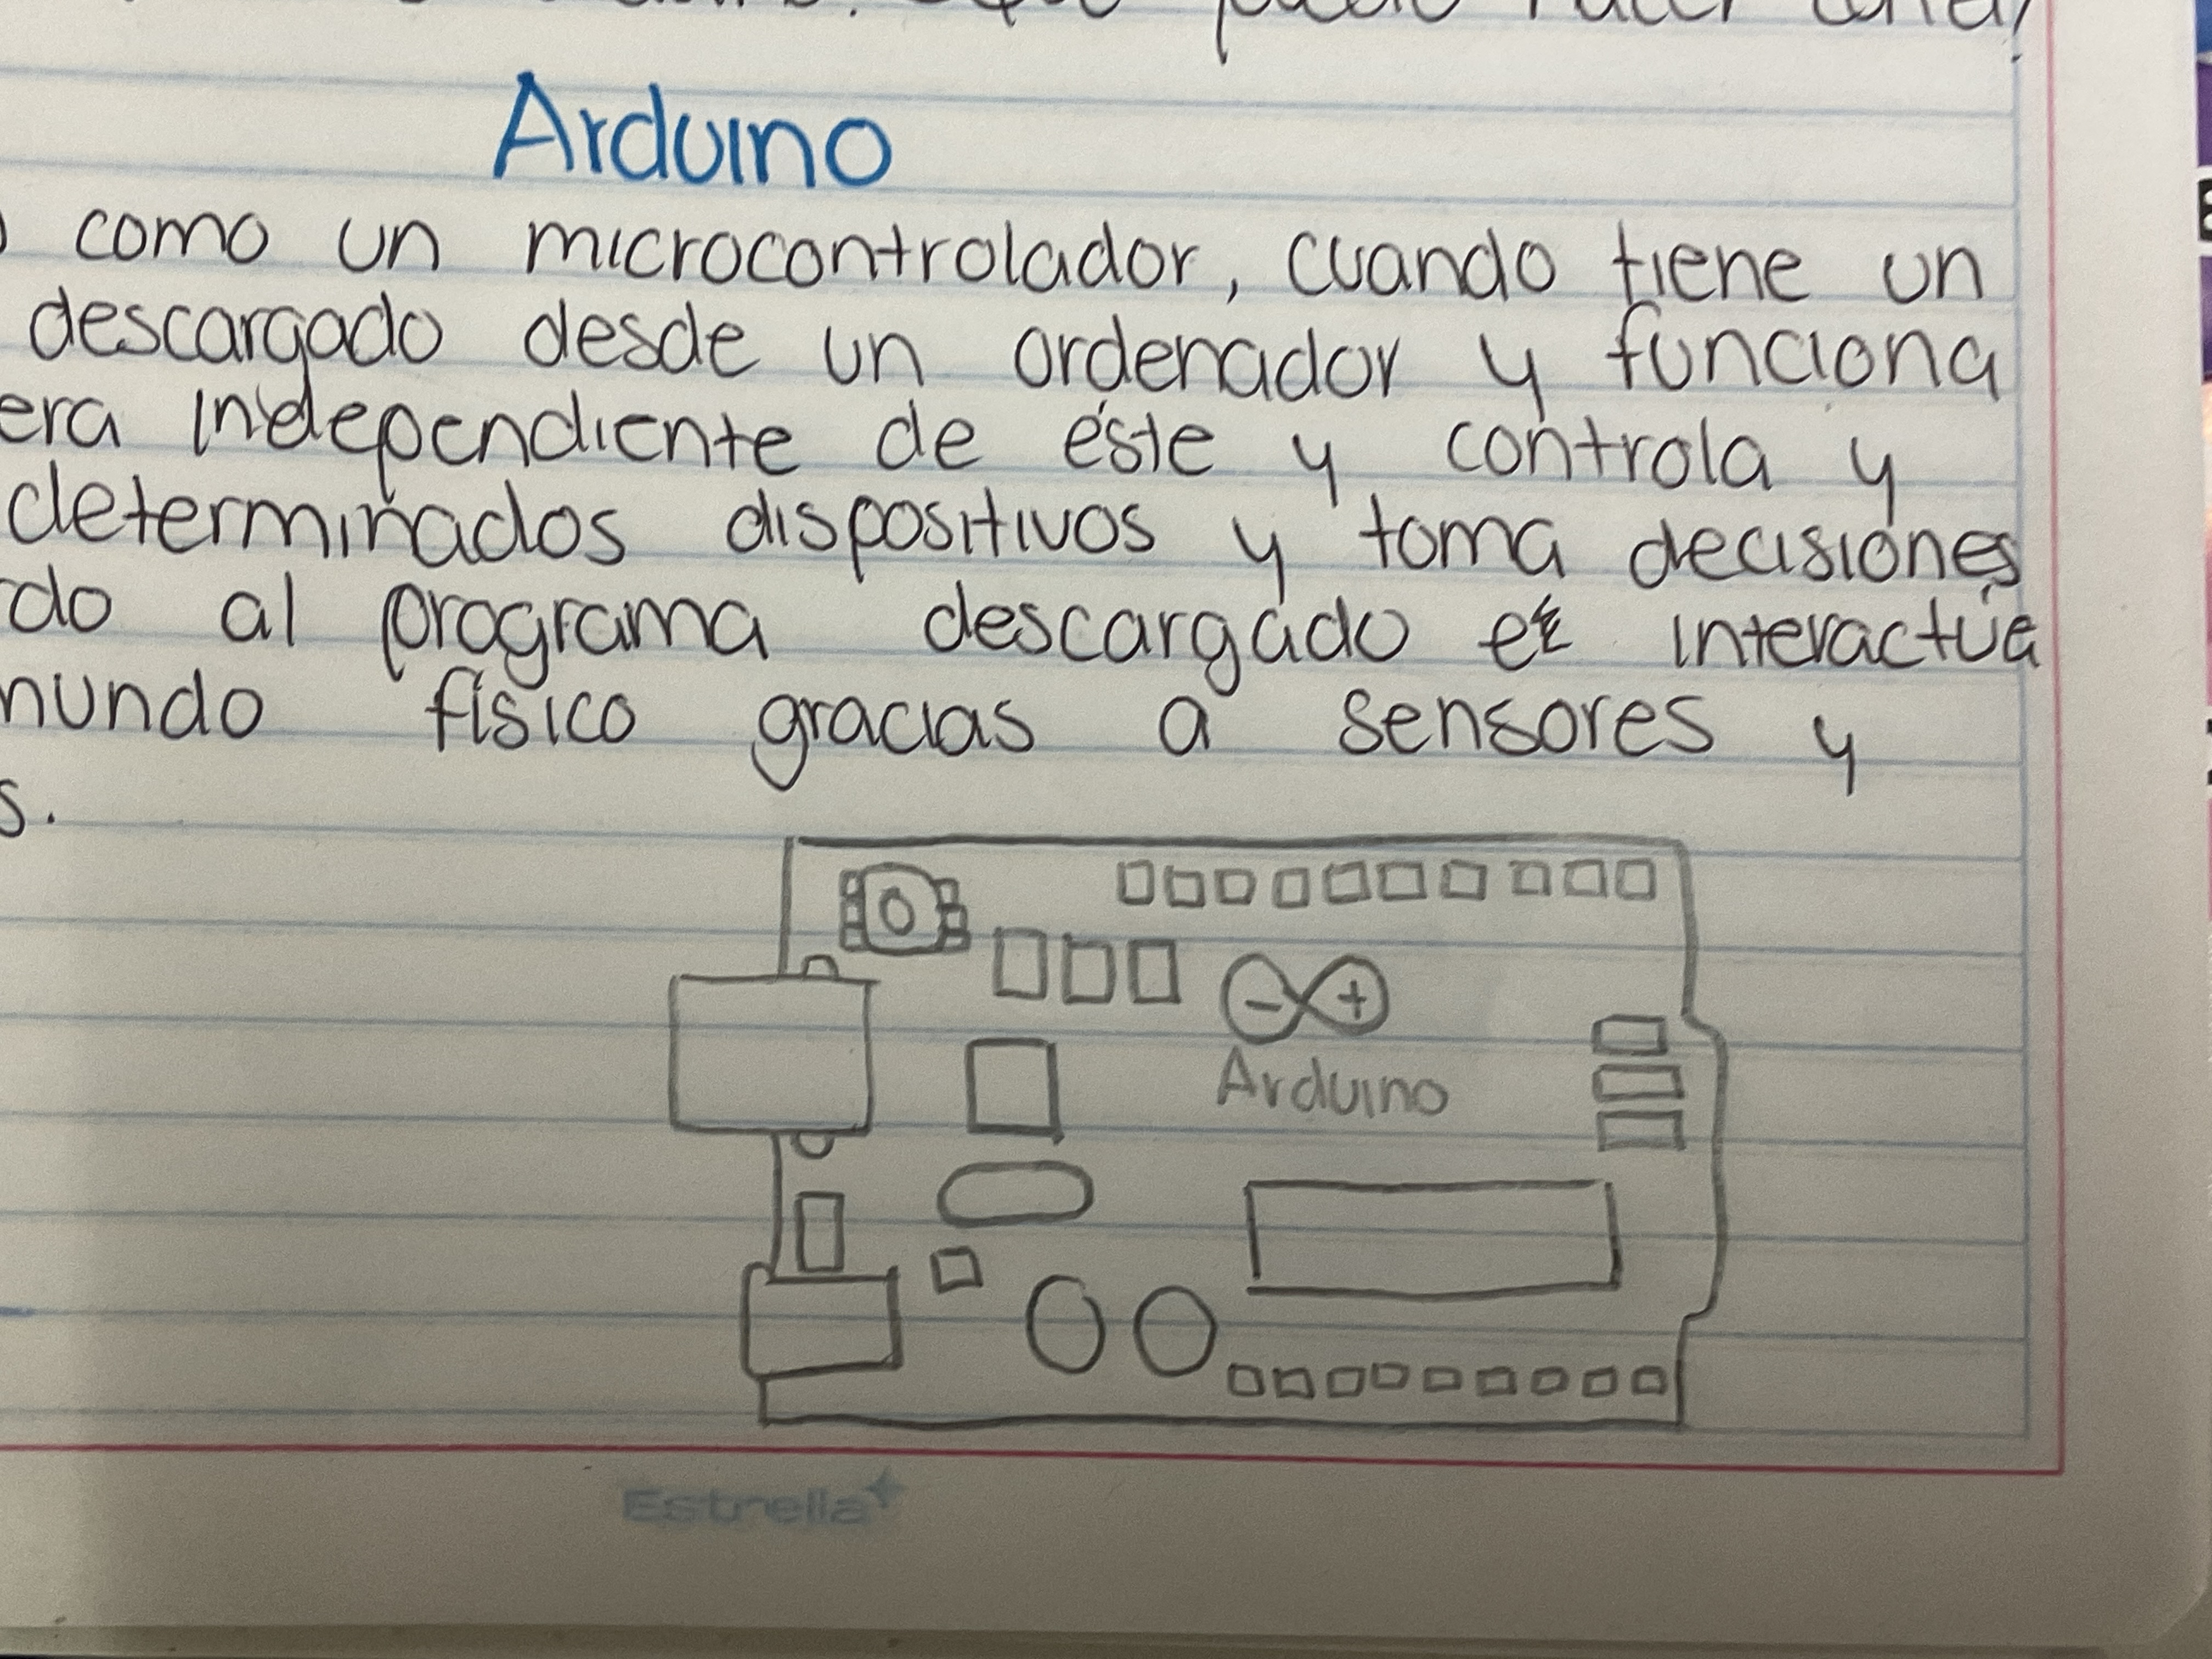 puedo hacer
Arduino
como un microcontrolador, cuando tiene un
descargado desde un ordenador y funciona
era independiente de éste y controla y
determinados dispositivos y toma decisiones
rdo al programa descargado e interactúa
mundo físico gracias a sensores y
s.
- +
Arduino
Estrella